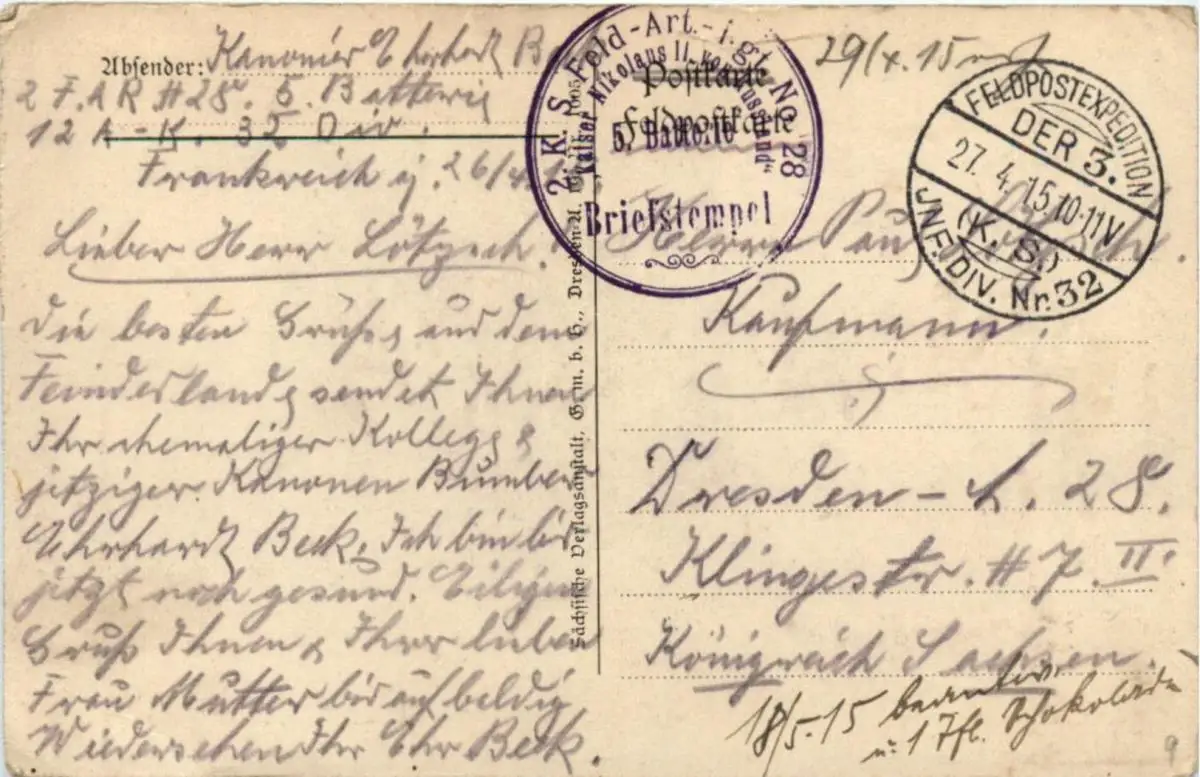 Absender: Kanonier Ehrhardt Beck
2 F.A.R # 28. 5. Batterie
12 A.-K. 32 Div.
Frankreich, 26/4.
Lieber Herr Lötzsch!
Die besten Grüße aus dem
Feindeslande sendet Ihnen
Ihr ehemaliger Kollege &
jetziger Kanonen Bumber
Ehrhardt Beck. Ich bin bis
jetzt noch gesund. Eiligen
Gruß Ihnen & Ihrer lieben
Frau Mutter bis auf baldig
Wiedersehen Ihr Ehr Beck.
Sächsische Verlagsanstalt, G. m. b. H., Dresden-A.
2. K. S. Feld-Art.- No. 28
"Kaiser Nikolaus II. von Russland"
5. Batterie
Briefstempel
Postkarte
Feldpostkarte
29/4.15
FELDPOSTEXPEDITION
DER 3.
27. 4. 15. 10-11V
(K. S.)
JNF. DIV. Nr. 32
Herrn Paul Lötzsch.
Kaufmann.
Dresden - A. 28.
Klingestr. # 7. II.
Königreich Sachsen.
18/5.-15 beantw.
u. 1 Tfl. Schokolade
9